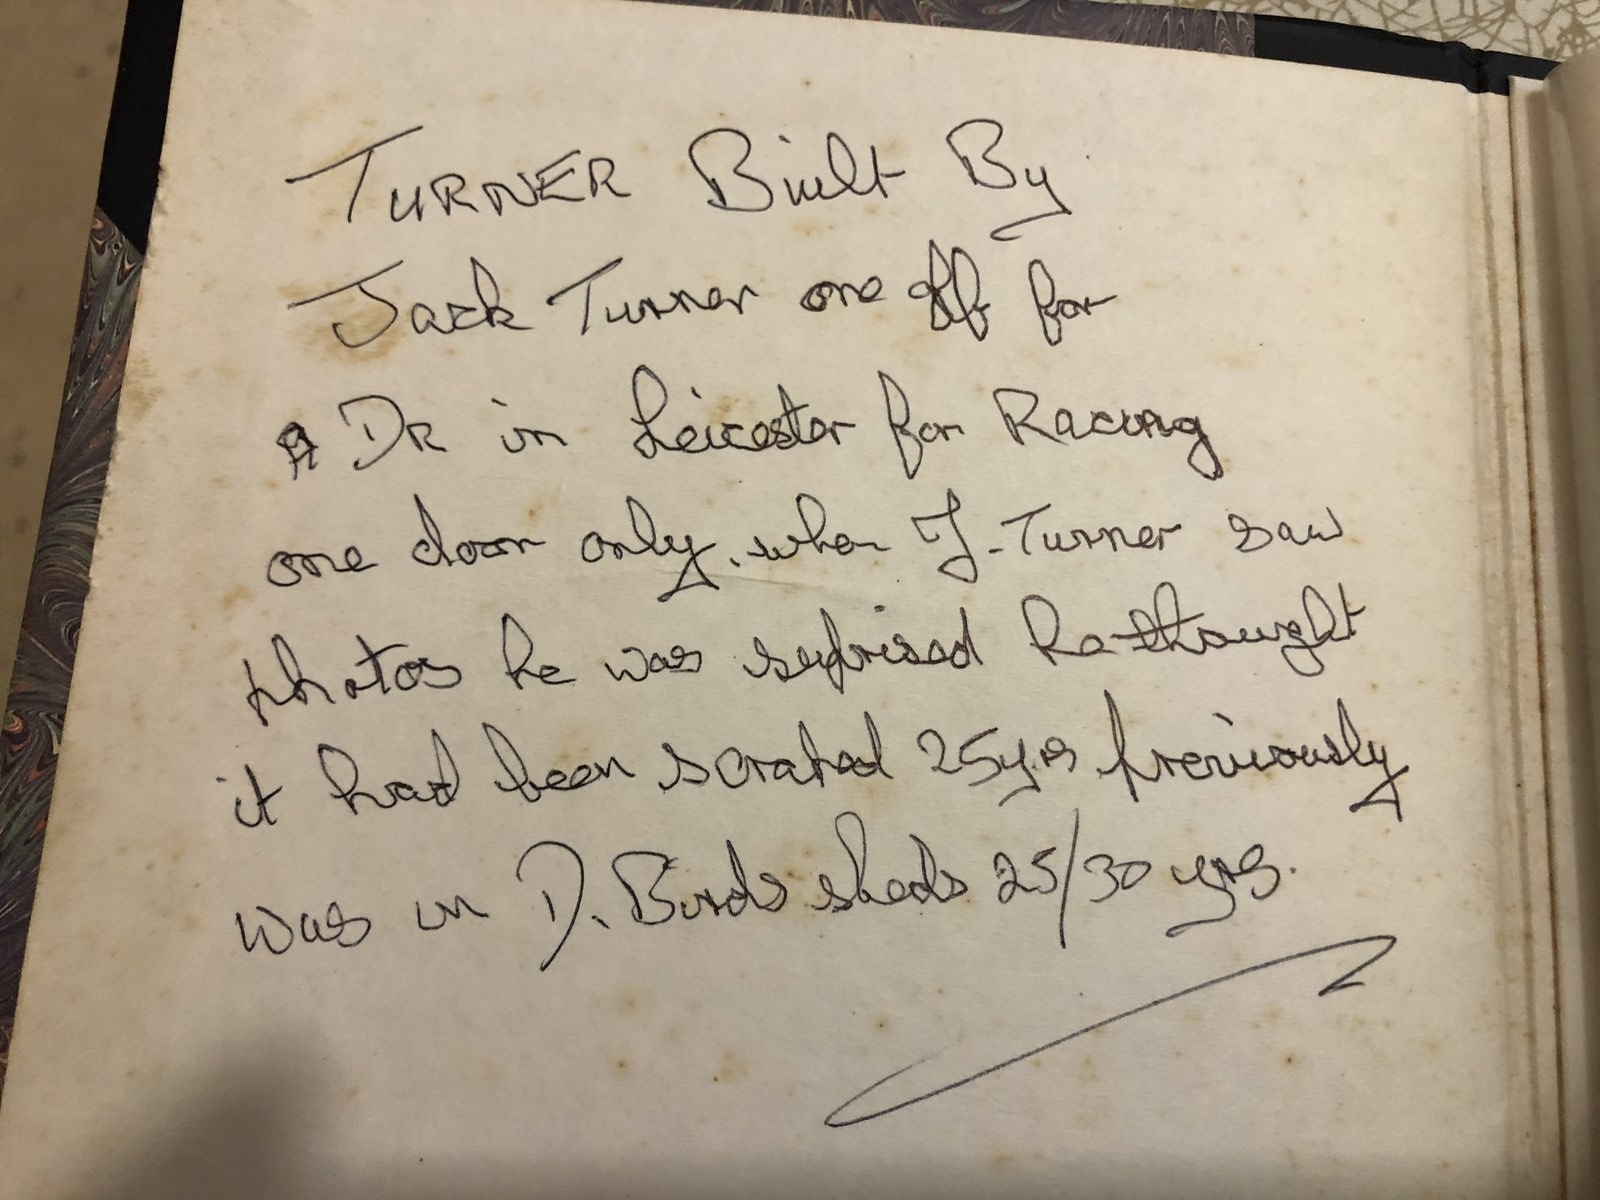 TURNER Built By
Jack Turner one off for
A DR in Leicester for Racing
one door only. when J. Turner saw
photos he was suprised he thought
it had been scrated 25yrs previously
was in D. Birds sheds 25/30 yrs.